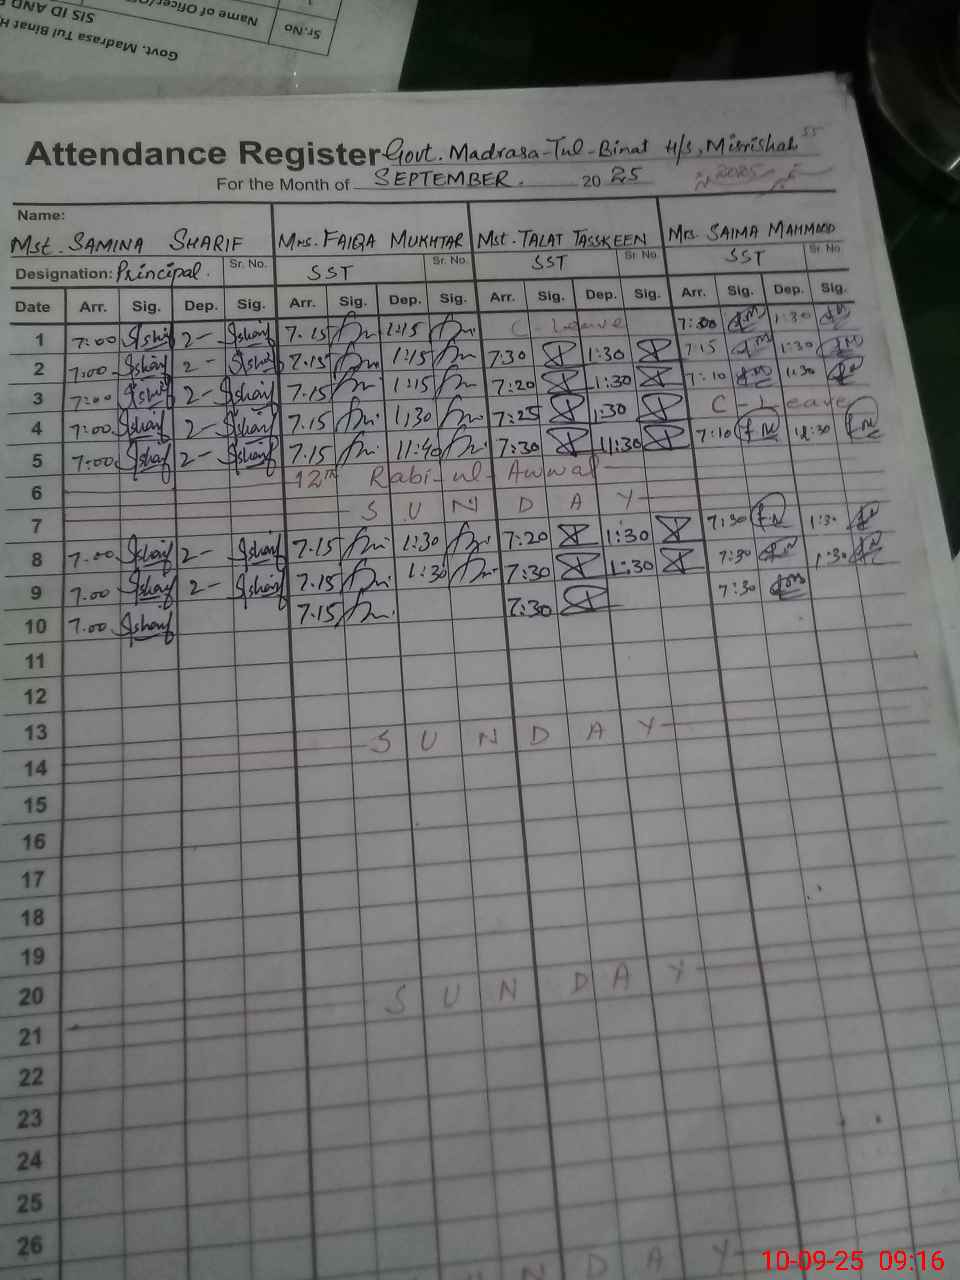 Govt. Madrasa Tul Binat H
SIS ID AND
Sr.No Name of Oficer/
Attendance Register Govt. Madrasa-Tul-Binat H/s, Misrishah
For the Month of SEPTEMBER. 2025
Name:
Mst. SAMINA SHARIF Mrs. FAIQA MUKHTAR Mst. TALAT TASSKEEN Mrs. SAIMA MAHMOOD
Designation: Principal. Sr. No. SST Sr. No. SST Sr. No. SST Sr. No.
Date Arr. Sig. Dep. Sig. Arr. Sig. Dep. Sig. Arr. Sig. Dep. Sig. Arr. Sig. Dep. Sig.
1 7:00 2- 7.15 1:15 C-Leave 7:00 1:30
2 7.00 2- 7.15 1:15 7:30 1:30 7:15 1:30
3 7:00 2- 7.15 1:15 7:20 1:30 7:10 1:30
4 7:00 2- 7.15 1:30 7:25 1:30 C-Leave
5 7:00 2- 7.15 11:40 7:30 11:30 7:10
6 12TH Rabi-ul-Awwal
7 SUNDAY
8 7.00 2- 7.15 1:30 7:20 1:30 7:30 1:30
9 7.00 2- 7.15 1:30 7:30 1:30 7:30 1:30
10 7.00 7.15 7:30 7:30
11
12
13
14 SUNDAY
15
16
17
18
19
20
21 SUNDAY
22
23
24
25
26
UNDAY
10-09-25 09:16